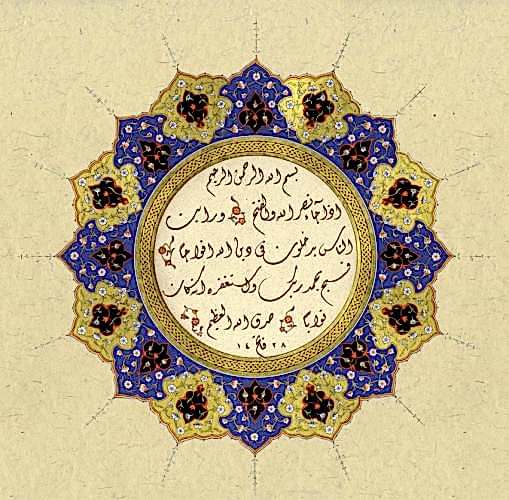 بسم الله الرحمن الرحيم
اذا جاء نصر الله والفتح ورايت
الناس يدخلون في دين الله افواجا
فسبح بحمد ربك واستغفره انه كان
توابا صدق الله العظيم